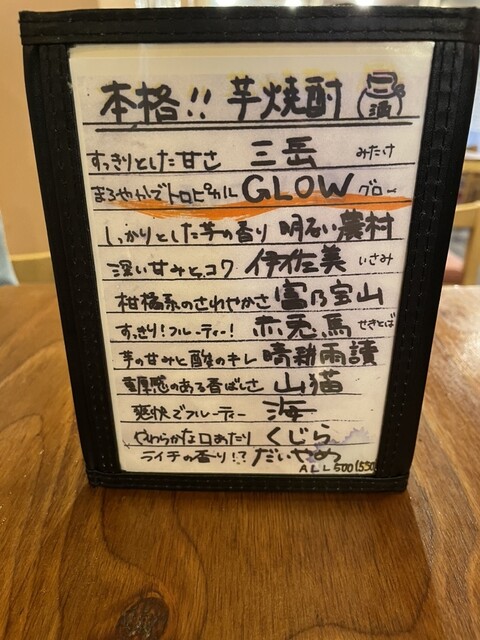 本格!! 芋焼酎 酒
すっきりとした甘さ 三岳 みたけ
まろやかでトロピカル GLOW グロー
しっかりとした芋の香り 明るい農村
深い甘みとコク 伊佐美 いさみ
柑橘系のさわやかさ 富乃宝山
すっきり!フルーティー! 赤兎馬 せきとば
芋の甘みと酸のキレ 晴耕雨讀
重厚感のある香ばしさ 山猫
爽快でフルーティー 海
やわらかな口あたり くじら
ライチの香り!? だいやめ
ALL500(550